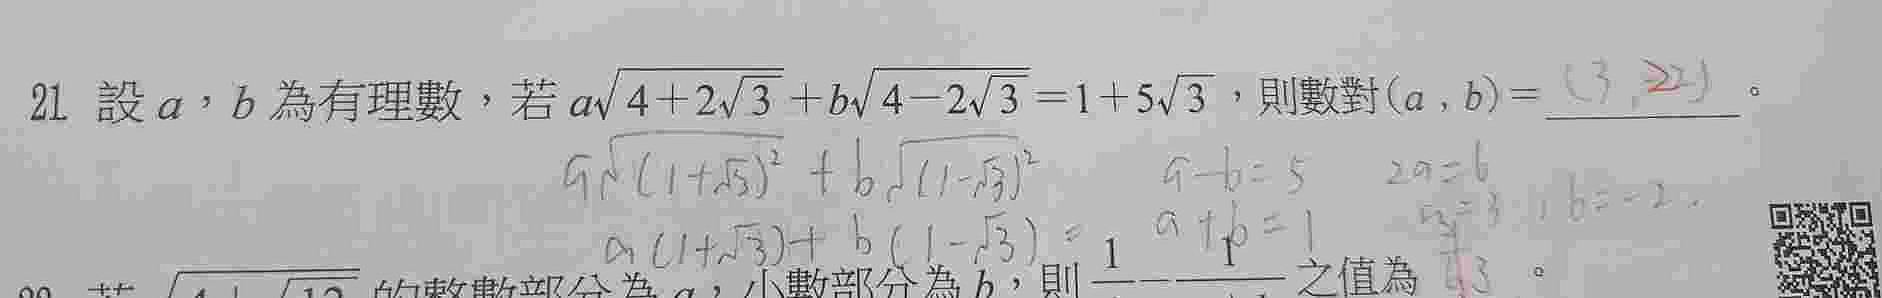 21. 設 a，b 為有理數，若 a√(4+2√3) + b√(4−2√3) = 1+5√3，則數對(a , b) = (3 , 2)。
a√(1+√3)² + b√(1-√3)²
a-b=5 2a=6
a(1+√3)+ b(1-√3) = a+b=1 =3 , b=-2.
的整數部分為 a，小數部分為 b，則 1 − 1 之值為 。